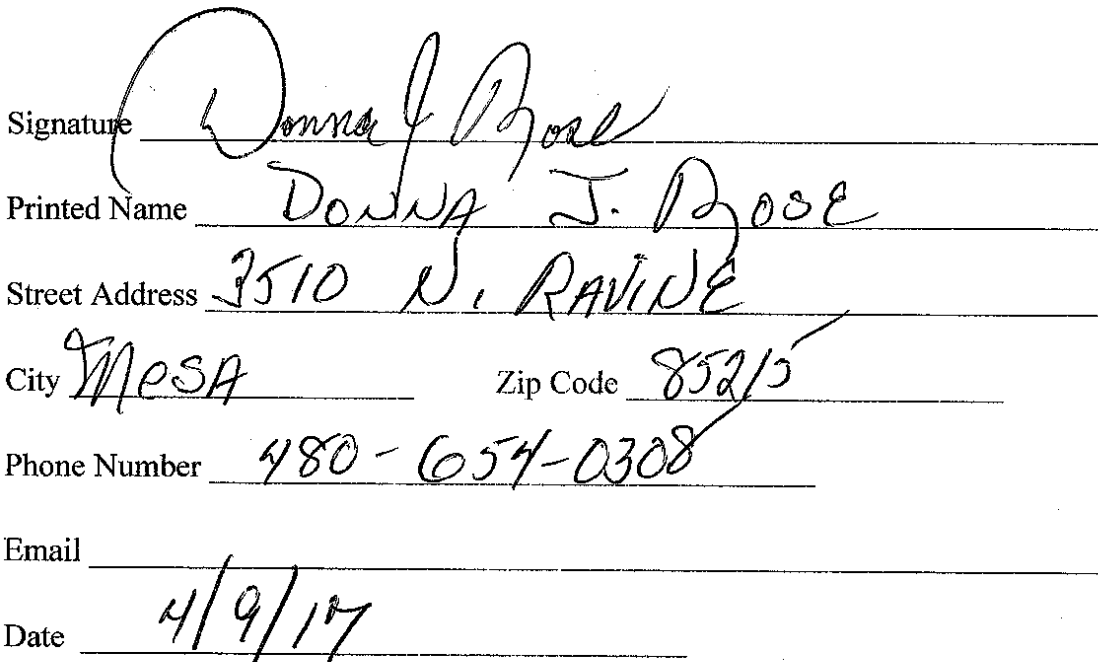 Signature Donna J Rose
Printed Name DONNA J. ROSE
Street Address 3510 N. RAVINE
City MESA Zip Code 85215
Phone Number 480-654-0308
Email
Date 4/9/17